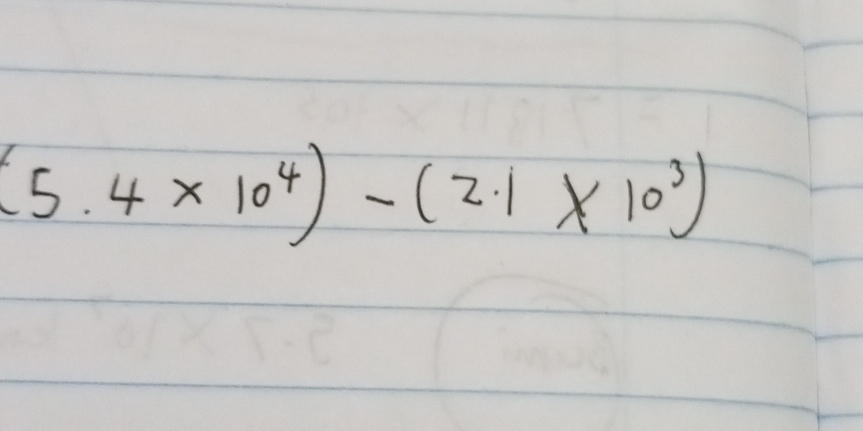 (5.4 × 10⁴) - (2.1 × 10³)